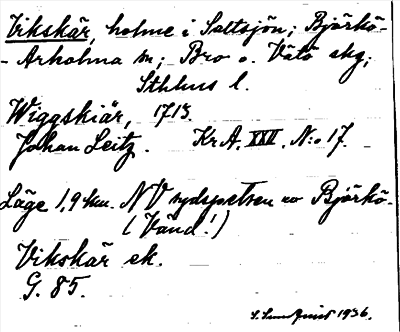 Vikskär, holme i Saltsjön; Björkö-
- Arholma sn; Bro o. Vätö skg;
Sthlms l.
Wiggskiär, 1713.
Johan Leitz. Kr A. XXII. N:o 17.
Läge 1,9 km. NV sydspetsen av Björkö.
(Vänd!)
Vikskär ek.
G. 85.
1936.